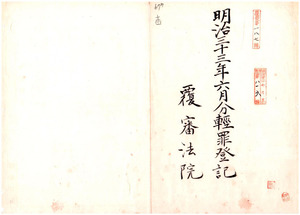 明治三十三年六月分輕罪登記
覆審法院